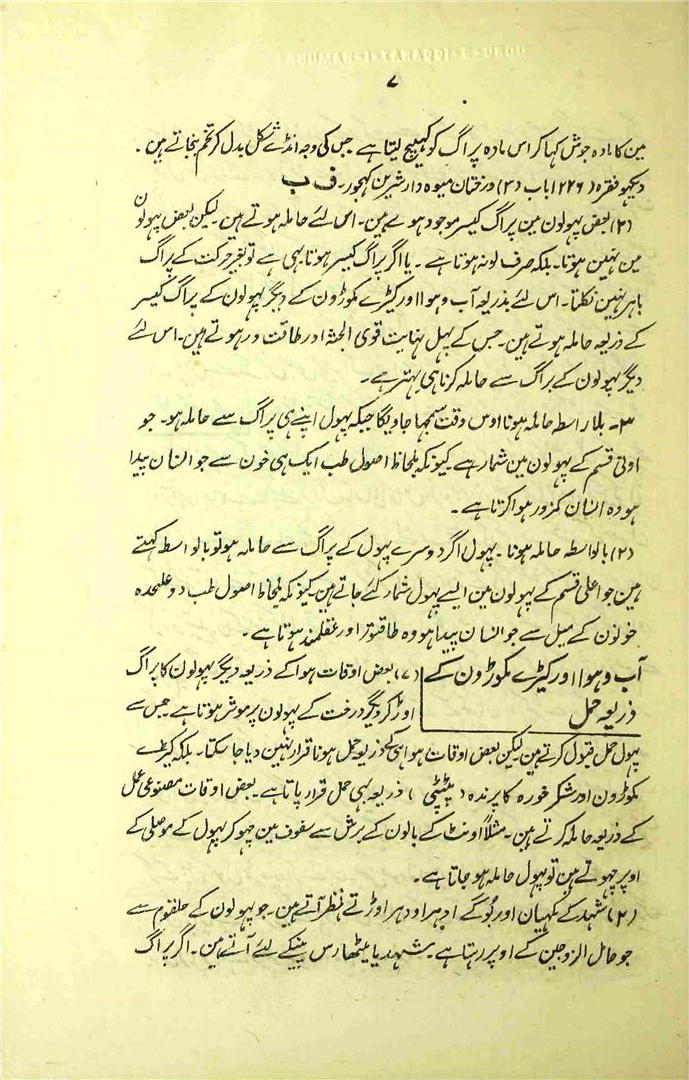 ۷
مین کا مادہ جوش کہا کر اس مادہ پراگ کو کھینچ لیتا ہے جس کی وجہ انڈے شکل بدل کر تخم بنجاتے ہین۔
دیکہو فقرہ (۲۲۶) باب (۳) درختان میوہ دار شیرین کہجور۔ ف ب
(۲) بعض پہولون مین پراگ کیسر موجود ہوے ہین۔ اس لئے حاملہ ہوتے ہین۔ لیکن بعض پہولون
مین نہین ہوتا۔ بلکہ صرف لونہ ہوتا ہے۔ یا اگر پراگ کیسر ہوتا بہی ہے تو بغیر حرکت کے پراگ
باہر نہین نکلتا۔ اس لئے بذریعہ آب و ہوا اور کیڑے مکوڑون کے دیگر پہولون کے پراگ کیسر
کے ذریعہ حاملہ ہوتے ہین۔ جس کے پہل نہایت قوی الجثہ اور طاقت ور ہوتے ہین۔ اس لئے
دیگر پہولون کے پراگ سے حاملہ کرنا ہی بہتر ہے۔
۳۔ بلا راسطہ حاملہ ہونا اوس وقت سمجہا جاویگا جبکہ پہول اپنے ہی پراگ سے حاملہ ہو۔ جو
اوتی قسم کے پہولون مین شمار ہے۔ کیونکہ بلحاظ اصول طب ایک ہی خون سے جو انسان پیدا
ہو وہ انسان کمزور ہوا کرتا ہے۔
(۲) بالواسطہ حاملہ ہونا۔ پہول اگر دوسرے پہول کے پراگ سے حاملہ ہو تو بالواسطہ کہتے
ہین جو اعلی قسم کے پہولون مین ایسے پہول شمار کئے جاتے ہین۔ کیونکہ بلحاظ اصول طب دو علیحدہ
خونون کے میل سے جو انسان پیدا ہو وہ طاقتور اور عقلمند ہوتا ہے۔
آب و ہوا اور کیڑے مکوڑون کے
ذریعہ حمل
(۷) بعض اوقات ہوا کے ذریعہ دیگر پہولون کا پراگ
اوڑ کر دیگر درخت کے پہولون پر موثر ہوتا ہے۔ جس سے
پہول حمل قبول کرتے ہین لیکن بعض اوقات ہوا ہی کے ذریعہ حمل ہونا قرار نہین دیا جا سکتا۔ بلکہ کیڑے
مکوڑون اور شکر خورہ کا پرندہ ( ) ذریعہ بہی حمل قرار پاتا ہے۔ بعض اوقات مصنوعی عمل
کے ذریعہ حاملہ کرتے ہین۔ مثلاً اونٹ کے بالون کے برش سے سفوف مین چہو کر پہول کے موصلی کے
اوپر چہوتے ہین تو پہول حاملہ ہو جاتا ہے۔
(۲) شہد کے مکہیان اور بُوگے ادہر اودہر اوڑتے نظر آتے ہین۔ جو پہولون کے حلقوم سے
جو حال الزوجین کے اوپر رہتا ہے۔ شہد یا میٹھا رس پینے کے لئے آتے ہین۔ اگر پراگ